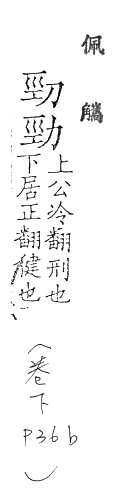 佩觿
勁
上公冷翻刑也
下居正翻健也
(卷下P36b)